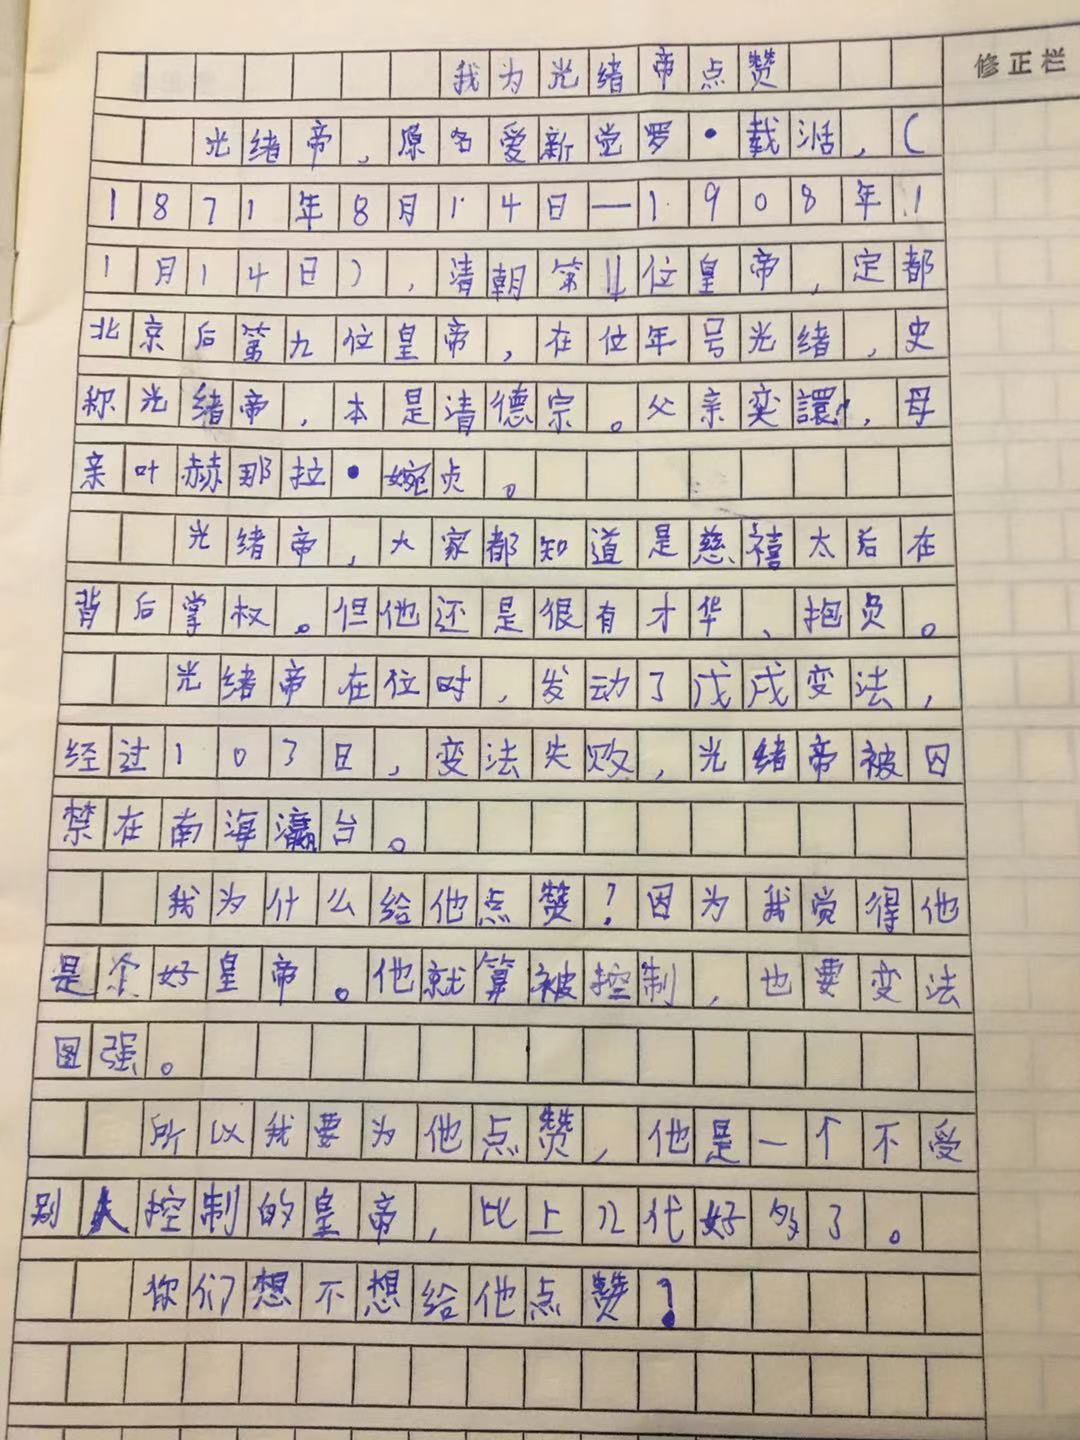 修正栏
我为光绪帝点赞
光绪帝，原名爱新觉罗·载湉，（
1871年8月14日—1908年1
1月14日），清朝第11位皇帝，定都
北京后第九位皇帝，在位年号光绪，史
称光绪帝，本是清德宗。父亲奕譞，母
亲叶赫那拉·婉贞。
光绪帝，大家都知道是慈禧太后在
背后掌权。但他还是很有才华、抱负。
光绪帝在位时，发动了戊戌变法，
经过103日，变法失败，光绪帝被囚
禁在南海瀛台。
我为什么给他点赞？因为我觉得他
是个好皇帝。他就算被控制，也要变法
图强。
所以我要为他点赞，他是一个不受
别人控制的皇帝，比上几代好多了。
你们想不想给他点赞？